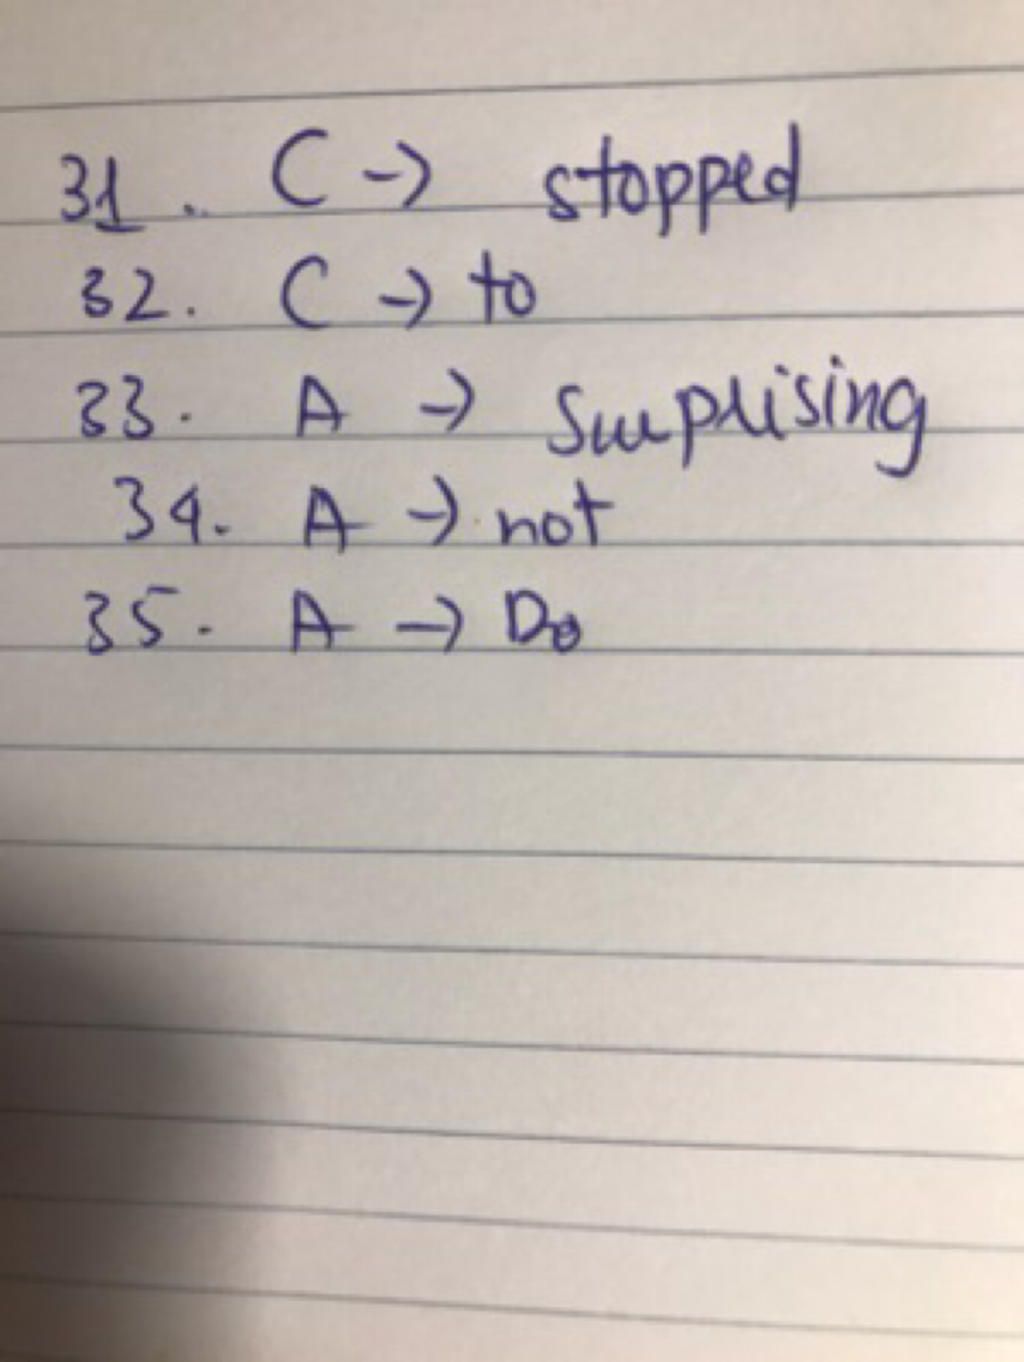 31. C -> stopped
32. C -> to
33. A -> Surprising
34. A -> not
35. A -> Do